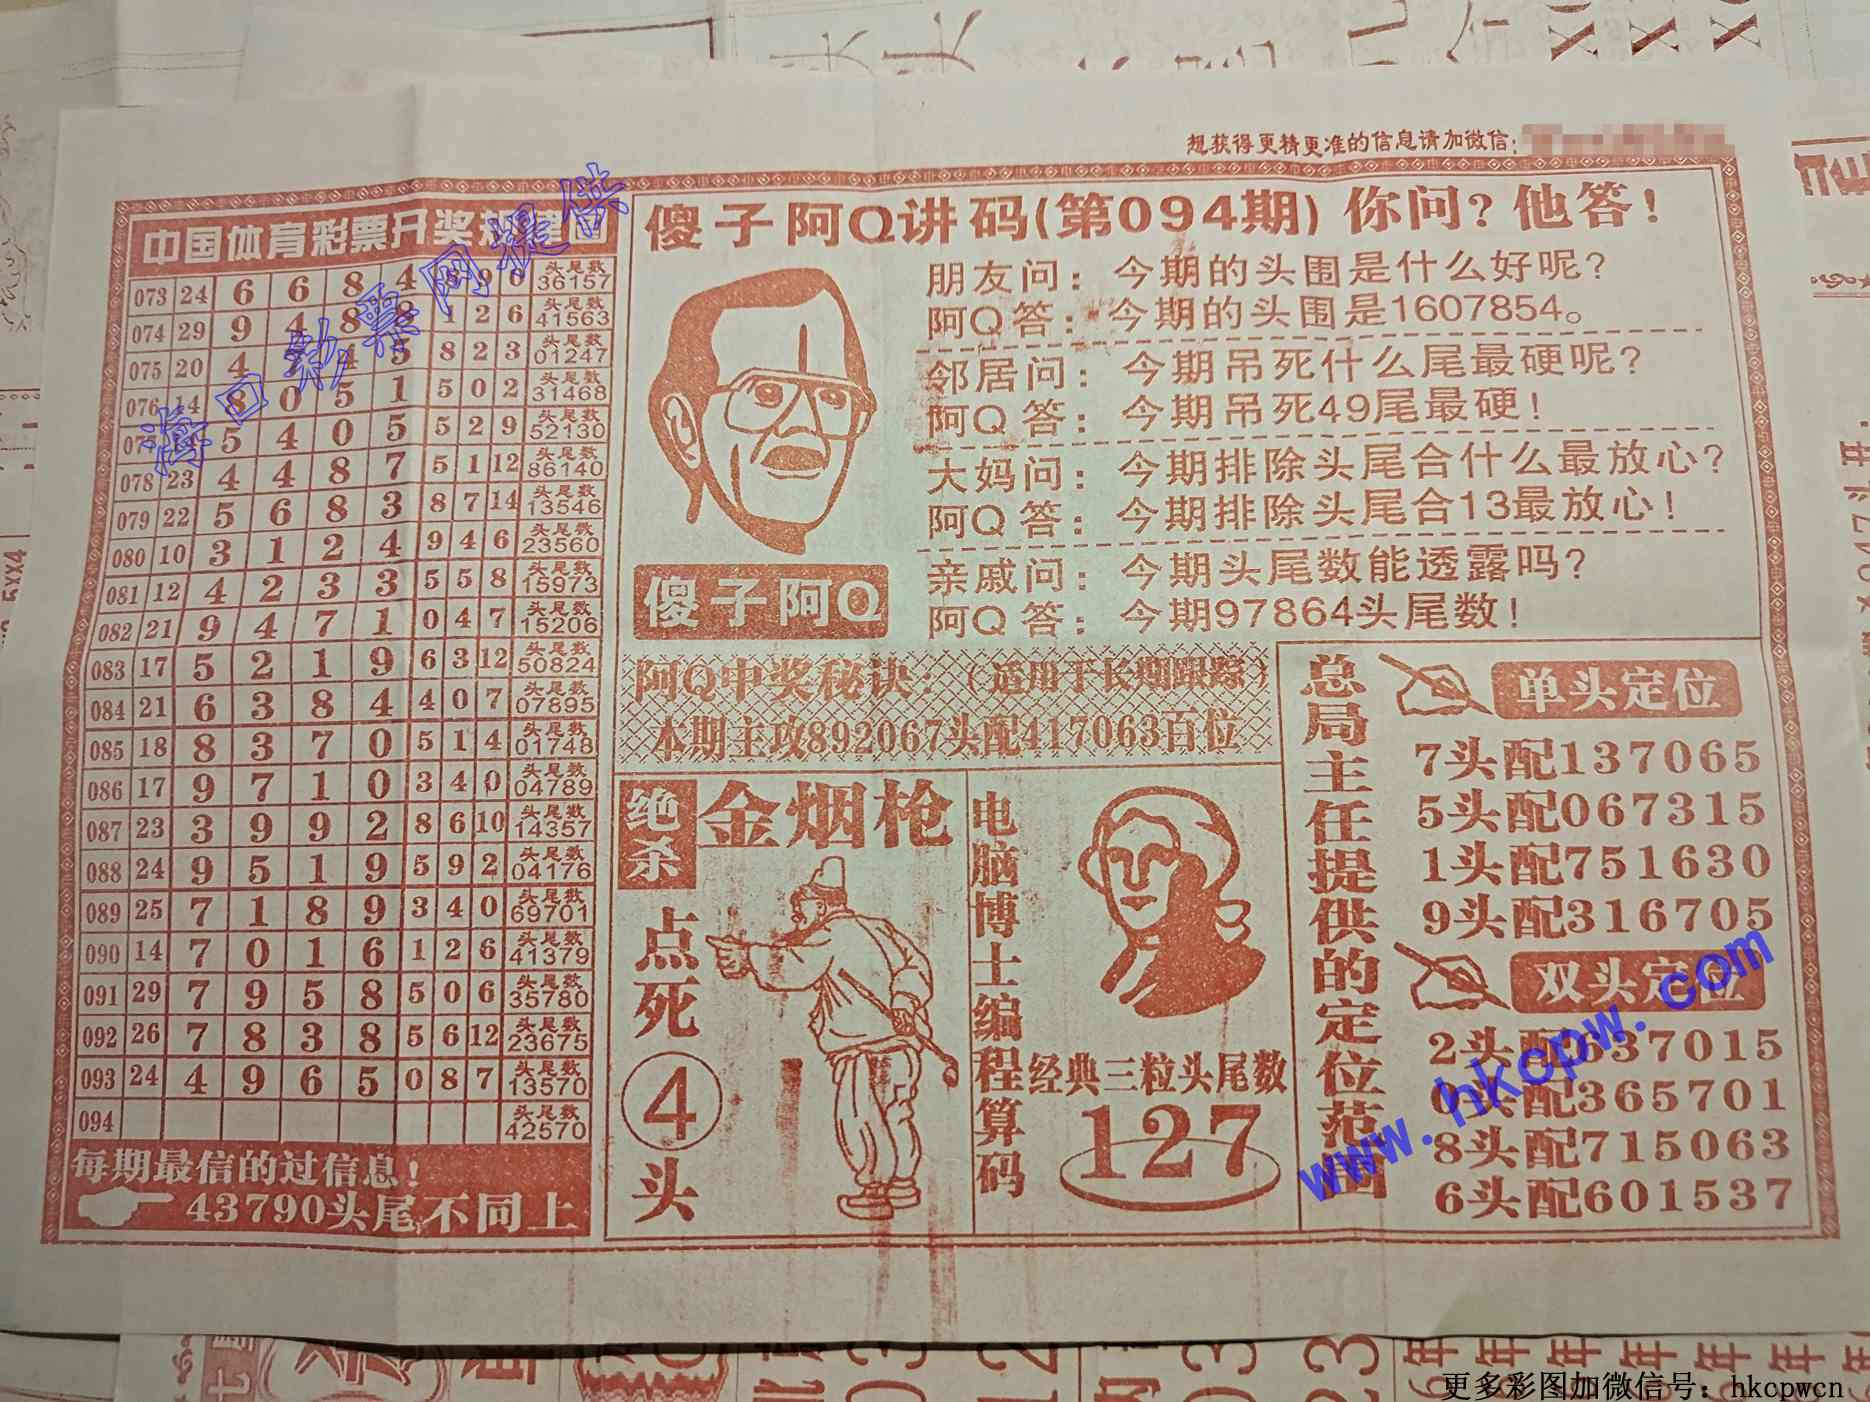 想获得更精更准的信息请加微信:
中国体育彩票开奖
海口彩票网提供
073 24 6 6 8 4 头尾数 36157
074 29 9 4 8 8 1 2 6 头尾数 41563
075 20 4 7 4 5 8 2 3 头尾数 01247
076 14 8 0 5 1 5 0 2 头尾数 31468
5 4 0 5 5 2 9 头尾数 52130
078 23 4 4 8 7 5 1 12 头尾数 86140
079 22 5 6 8 3 8 7 14 头尾数 13546
080 10 3 1 2 4 9 4 6 头尾数 23560
081 12 4 2 3 3 5 5 8 头尾数 15973
082 21 9 4 7 1 0 4 7 头尾数 15206
083 17 5 2 1 9 6 3 12 头尾数 50824
084 21 6 3 8 4 4 0 7 头尾数 07895
085 18 8 3 7 0 5 1 4 头尾数 01748
086 17 9 7 1 0 3 4 0 头尾数 04789
087 23 3 9 9 2 8 6 10 头尾数 14357
088 24 9 5 1 9 5 9 2 头尾数 04176
089 25 7 1 8 9 3 4 0 头尾数 69701
090 14 7 0 1 6 1 2 6 头尾数 41379
091 29 7 9 5 8 5 0 6 头尾数 35780
092 26 7 8 3 8 5 6 12 头尾数 23675
093 24 4 9 6 5 0 8 7 头尾数 13570
094 头尾数 42570
每期最信的过信息!
43790头尾不同上
傻子阿Q讲码(第094期) 你问?他答!
朋友问:今期的头围是什么好呢?
阿Q答:今期的头围是1607854。
邻居问:今期吊死什么尾最硬呢?
阿Q答:今期吊死49尾最硬!
大妈问:今期排除头尾合什么最放心?
阿Q答:今期排除头尾合13最放心!
亲戚问:今期头尾数能透露吗?
阿Q答:今期97864头尾数!
傻子阿Q
阿Q中奖秘诀:(适用于长期跟踪)
本期主攻892067头配417063百位
绝杀
金烟枪
点死④头
电脑博士编程算码
经典三粒头尾数
127
总局主任提供的定位范围
单头定位
7头配137065
5头配067315
1头配751630
9头配316705
双头定位
2头配637015
0头配365701
8头配715063
6头配601537
www.hkcpw.com
更多彩图加微信号:hkcpwcn